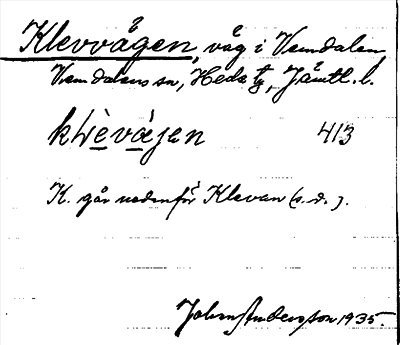 Klevvågen, våg i Vemdalen,
Vemdalens sn, Heds tg, Jämtl. l.
klèvàjen 413
K. går nedenför Klevan (s. d.).
John Andersson 1935.